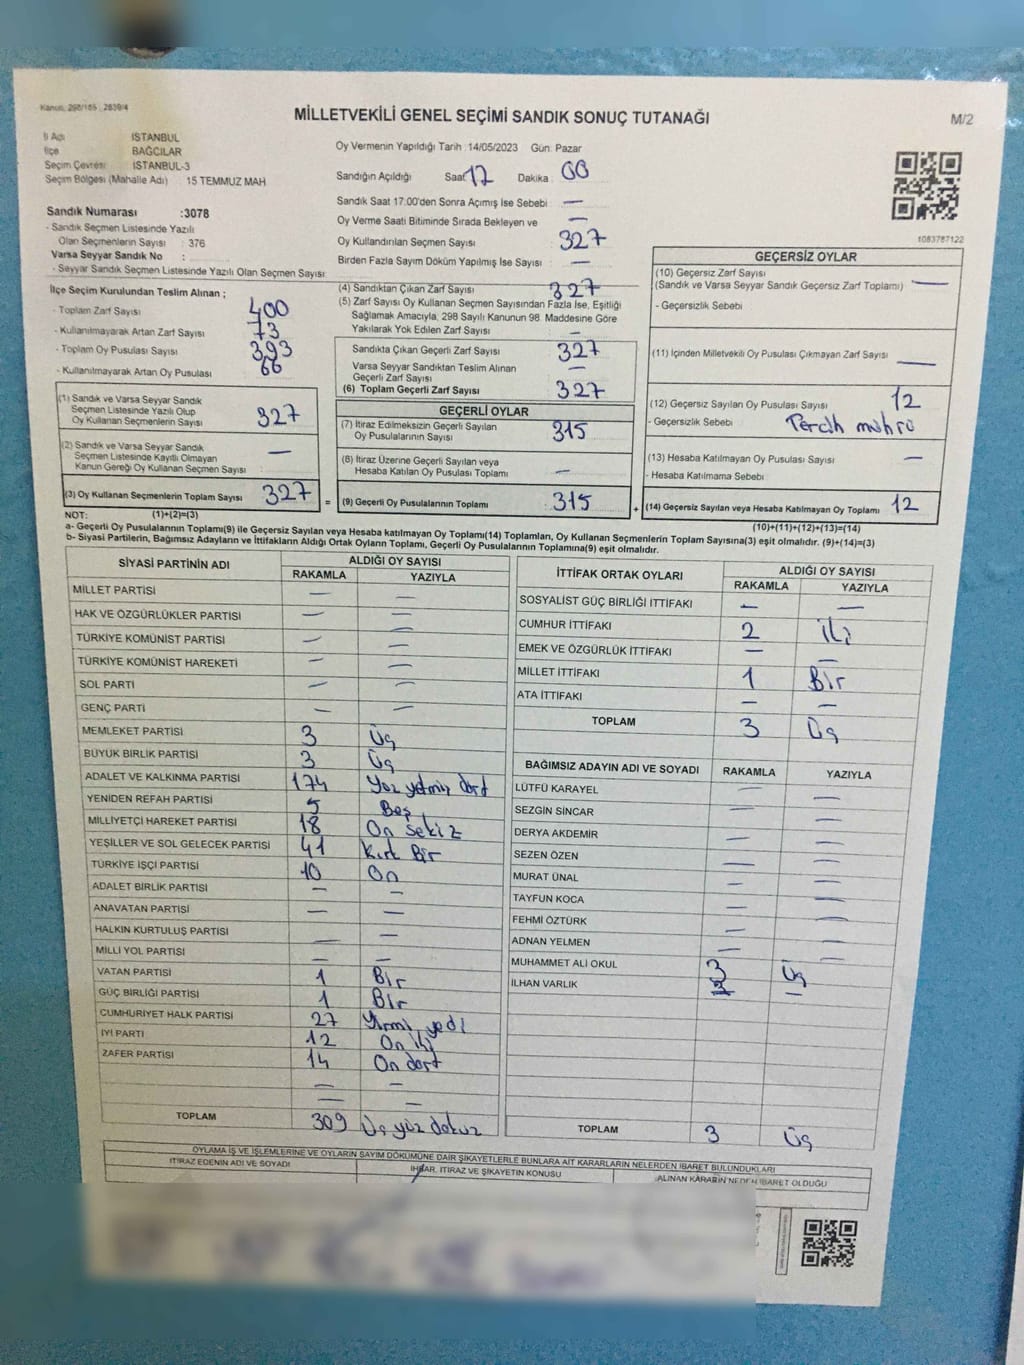 Kanun, 298/105 , 2839/4
MİLLETVEKİLİ GENEL SEÇİMİ SANDIK SONUÇ TUTANAĞI
M/2
İl Adı İSTANBUL
İlçe BAĞCILAR
Seçim Çevresi İSTANBUL-3
Seçim Bölgesi (Mahalle Adı) 15 TEMMUZ MAH
Sandık Numarası :3078
- Sandık Seçmen Listesinde Yazılı
Olan Seçmenlerin Sayısı : 376
Varsa Seyyar Sandık No :
- Seyyar Sandık Seçmen Listesinde Yazılı Olan Seçmen Sayısı:
Oy Vermenin Yapıldığı Tarih :14/05/2023 Gün: Pazar
Sandığın Açıldığı Saat 17 Dakika 00
Sandık Saat 17:00'den Sonra Açılmış İse Sebebi —
Oy Verme Saati Bitiminde Sırada Bekleyen ve —
Oy Kullandırılan Seçmen Sayısı 327
Birden Fazla Sayım Döküm Yapılmış İse Sayısı —
1083787122
İlçe Seçim Kurulundan Teslim Alınan ;
- Toplam Zarf Sayısı 400
- Kullanılmayarak Artan Zarf Sayısı 73
- Toplam Oy Pusulası Sayısı 393
- Kullanılmayarak Artan Oy Pusulası 66
(1) Sandık ve Varsa Seyyar Sandık
Seçmen Listesinde Yazılı Olup
Oy Kullanan Seçmenlerin Sayısı 327
(2) Sandık ve Varsa Seyyar Sandık
Seçmen Listesinde Kayıtlı Olmayan
Kanun Gereği Oy Kullanan Seçmen Sayısı : —
(3) Oy Kullanan Seçmenlerin Toplam Sayısı 327 =
(4) Sandıktan Çıkan Zarf Sayısı 327
(5) Zarf Sayısı Oy Kullanan Seçmen Sayısından Fazla İse, Eşitliği
Sağlamak Amacıyla, 298 Sayılı Kanunun 98. Maddesine Göre
Yakılarak Yok Edilen Zarf Sayısı —
Sandıkta Çıkan Geçerli Zarf Sayısı 327
Varsa Seyyar Sandıktan Teslim Alınan
Geçerli Zarf Sayısı —
(6) Toplam Geçerli Zarf Sayısı 327
GEÇERLİ OYLAR
(7) İtiraz Edilmeksizin Geçerli Sayılan
Oy Pusulalarının Sayısı 315
(8) İtiraz Üzerine Geçerli Sayılan veya
Hesaba Katılan Oy Pusulası Toplamı —
(9) Geçerli Oy Pusulalarının Toplamı 315 +
GEÇERSİZ OYLAR
(10) Geçersiz Zarf Sayısı
(Sandık ve Varsa Seyyar Sandık Geçersiz Zarf Toplamı) —
- Geçersizlik Sebebi
(11) İçinden Milletvekili Oy Pusulası Çıkmayan Zarf Sayısı —
(12) Geçersiz Sayılan Oy Pusulası Sayısı 12
- Geçersizlik Sebebi Tercih mührü
(13) Hesaba Katılmayan Oy Pusulası Sayısı —
- Hesaba Katılmama Sebebi
(14) Geçersiz Sayılan veya Hesaba Katılmayan Oy Toplamı 12
NOT: (1)+(2)=(3)
(10)+(11)+(12)+(13)=(14)
a- Geçerli Oy Pusulalarının Toplamı(9) ile Geçersiz Sayılan veya Hesaba katılmayan Oy Toplamı(14) Toplamları, Oy Kullanan Seçmenlerin Toplam Sayısına(3) eşit olmalıdır. (9)+(14)=(3)
b- Siyasi Partilerin, Bağımsız Adayların ve İttifakların Aldığı Ortak Oyların Toplamı, Geçerli Oy Pusulalarının Toplamına(9) eşit olmalıdır.
SİYASİ PARTİNİN ADI ALDIĞI OY SAYISI
RAKAMLA YAZIYLA
MİLLET PARTİSİ — —
HAK VE ÖZGÜRLÜKLER PARTİSİ — —
TÜRKİYE KOMÜNİST PARTİSİ — —
TÜRKİYE KOMÜNİST HAREKETİ — —
SOL PARTİ — —
GENÇ PARTİ — —
MEMLEKET PARTİSİ 3 Üç
BÜYÜK BİRLİK PARTİSİ 3 Üç
ADALET VE KALKINMA PARTİSİ 174 Yüz yetmiş dört
YENİDEN REFAH PARTİSİ 5 Beş
MİLLİYETÇİ HAREKET PARTİSİ 18 On sekiz
YEŞİLLER VE SOL GELECEK PARTİSİ 41 Kırk Bir
TÜRKİYE İŞÇİ PARTİSİ 10 On
ADALET BİRLİK PARTİSİ — —
ANAVATAN PARTİSİ — —
HALKIN KURTULUŞ PARTİSİ — —
MİLLİ YOL PARTİSİ — —
VATAN PARTİSİ 1 Bir
GÜÇ BİRLİĞİ PARTİSİ 1 Bir
CUMHURİYET HALK PARTİSİ 27 Yirmi yedi
İYİ PARTİ 12 On iki
ZAFER PARTİSİ 14 On dört
— —
— —
TOPLAM 309 Üç yüz dokuz
İTTİFAK ORTAK OYLARI ALDIĞI OY SAYISI
RAKAMLA YAZIYLA
SOSYALİST GÜÇ BİRLİĞİ İTTİFAKI — —
CUMHUR İTTİFAKI 2 İki
EMEK VE ÖZGÜRLÜK İTTİFAKI — —
MİLLET İTTİFAKI 1 Bir
ATA İTTİFAKI — —
TOPLAM 3 Üç
BAĞIMSIZ ADAYIN ADI VE SOYADI RAKAMLA YAZIYLA
LÜTFÜ KARAYEL — —
SEZGİN SİNCAR — —
DERYA AKDEMİR — —
SEZEN ÖZEN — —
MURAT ÜNAL — —
TAYFUN KOCA — —
FEHMİ ÖZTÜRK — —
ADNAN YELMEN — —
MUHAMMET ALİ OKUL 3 Üç
İLHAN VARLIK —
TOPLAM 3 Üç
OYLAMA İŞ VE İŞLEMLERİNE VE OYLARIN SAYIM DÖKÜMÜNE DAİR ŞİKAYETLERLE BUNLARA AİT KARARLARIN NELERDEN İBARET BULUNDUKLARI
İTİRAZ EDENİN ADI VE SOYADI İHBAR, İTİRAZ VE ŞİKAYETİN KONUSU ALINAN KARARIN NEDEN İBARET OLDUĞU